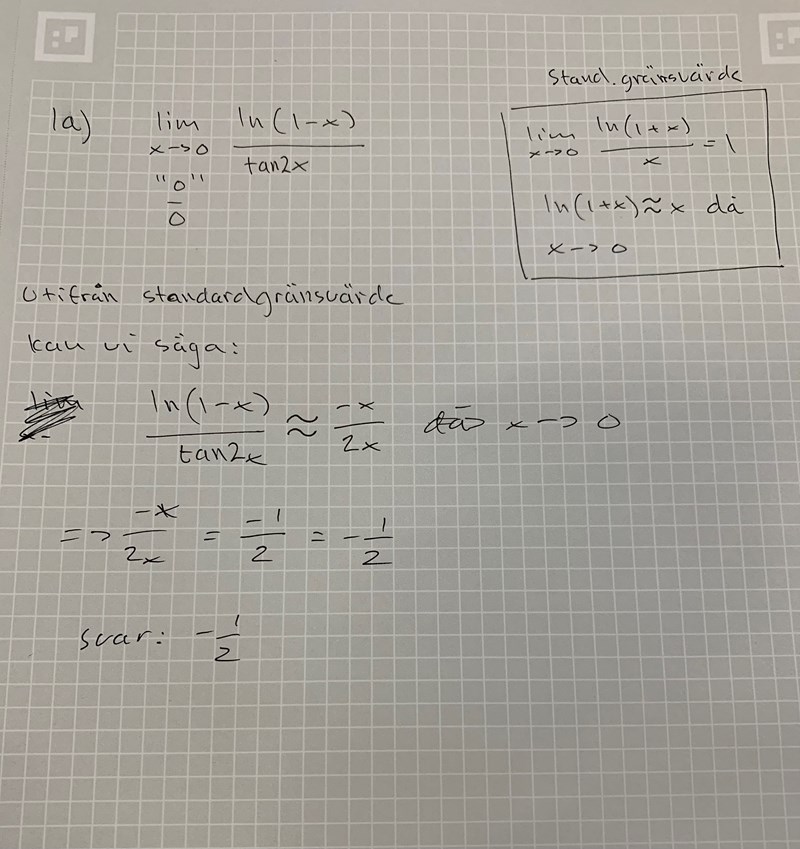 Stand. gränsvärde
1a) lim x→0 ln(1-x) / tan2x
"0" / 0
lim x→0 ln(1+x) / x = 1
ln(1+x) ≈ x då
x → 0
Utifrån standardgränsvärde
kan vi säga:
ln(1-x) / tan2x ≈ -x / 2x då x → 0
=> -x / 2x = -1 / 2 = - 1 / 2
svar: - 1 / 2